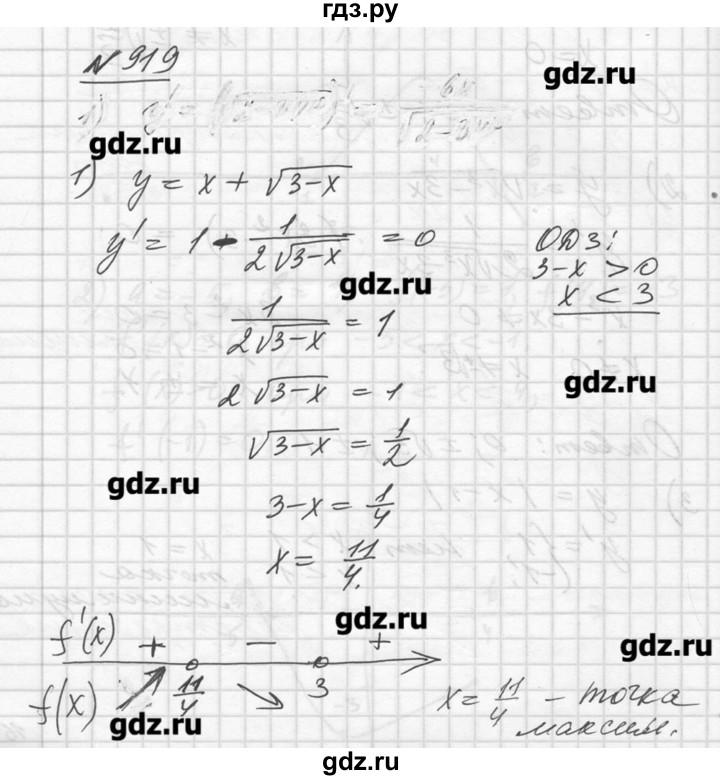 гдз.ру
№ 919
gdz.ru
gdz.ru
1) y = x + √(3-x)
y' = 1 - 1/(2√(3-x)) = 0
ОДЗ:
3-x > 0
x < 3
gdz.ru
1/(2√(3-x)) = 1
2√(3-x) = 1
gdz.ru
√(3-x) = 1/2
gdz.ru
3-x = 1/4
x = 11/4.
gdz.ru
f'(x) + - +
gdz.ru
f(x) 11/4 3
x = 11/4 - точка
максим.
gdz.ru
gdz.ru